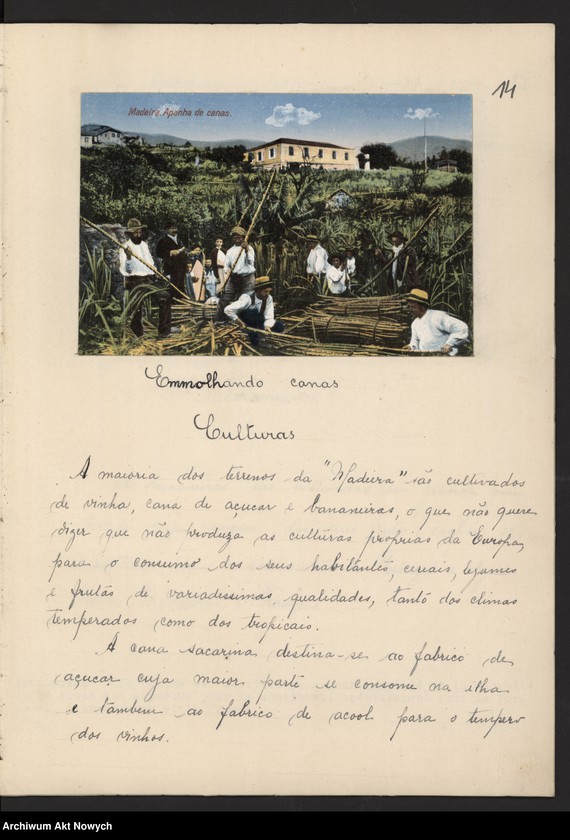 14
Madeira. Apanha de canas.
Emmolhando canas
Culturas
A maioria dos terrenos da "Madeira" são cultivados
de vinha, cana de açucar e bananeiras, o que não quere
dizer que não produza as culturas proprias da Europa,
para o consumo dos seus habitantes, cereais, legumes
e frutas de variadissimas qualidades, tanto dos climas
temperados como dos tropicais.
A cana sacarina destina-se ao fabrico de
açucar cuja maior parte se consome na ilha
e tambem ao fabrico de acool para o tempero
dos vinhos.
Archiwum Akt Nowych